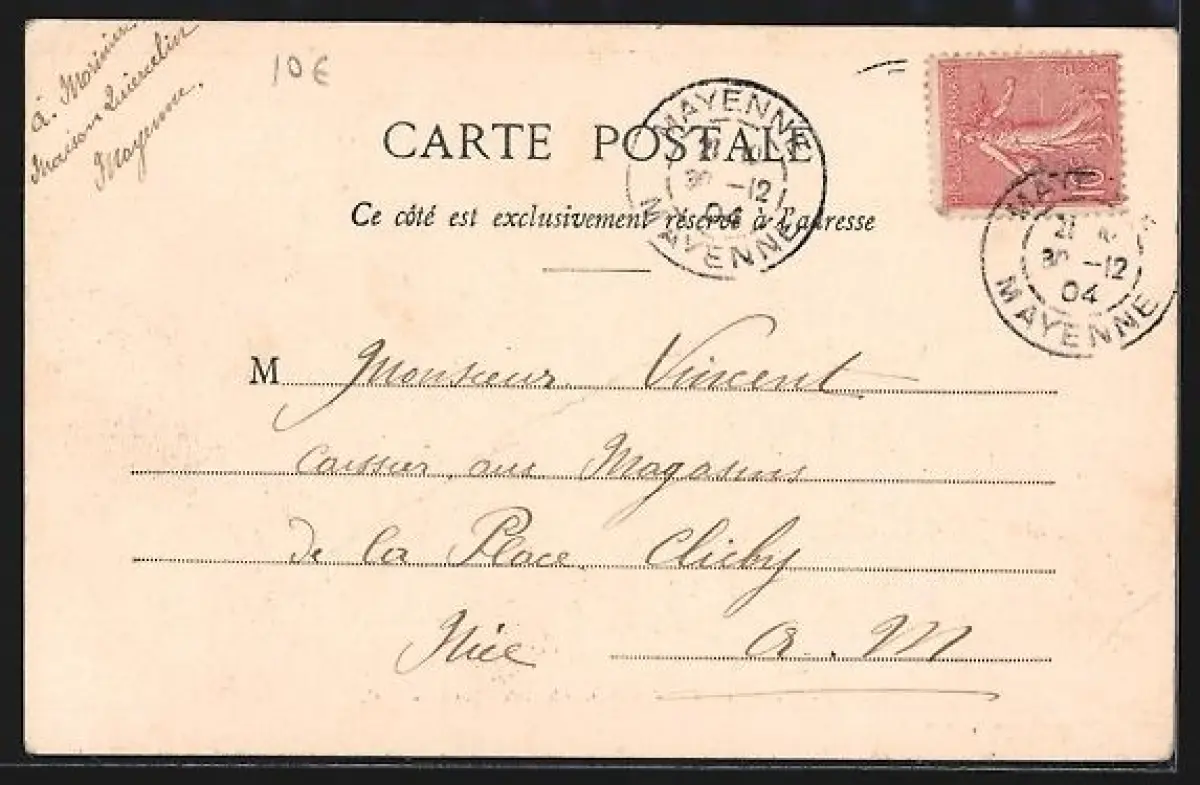 à. Morinier
Maison
Mayenne.
10€
CARTE POSTALE
Ce côté est exclusivement réservé à l'adresse
MAYENNE
30 -12
04
MAYENNE
10
MAYENNE
21
30 -12
04
MAYENNE
M Monsieur Vincent
Caissier, aux Magasins
de la Place Clichy
Nice
A. M